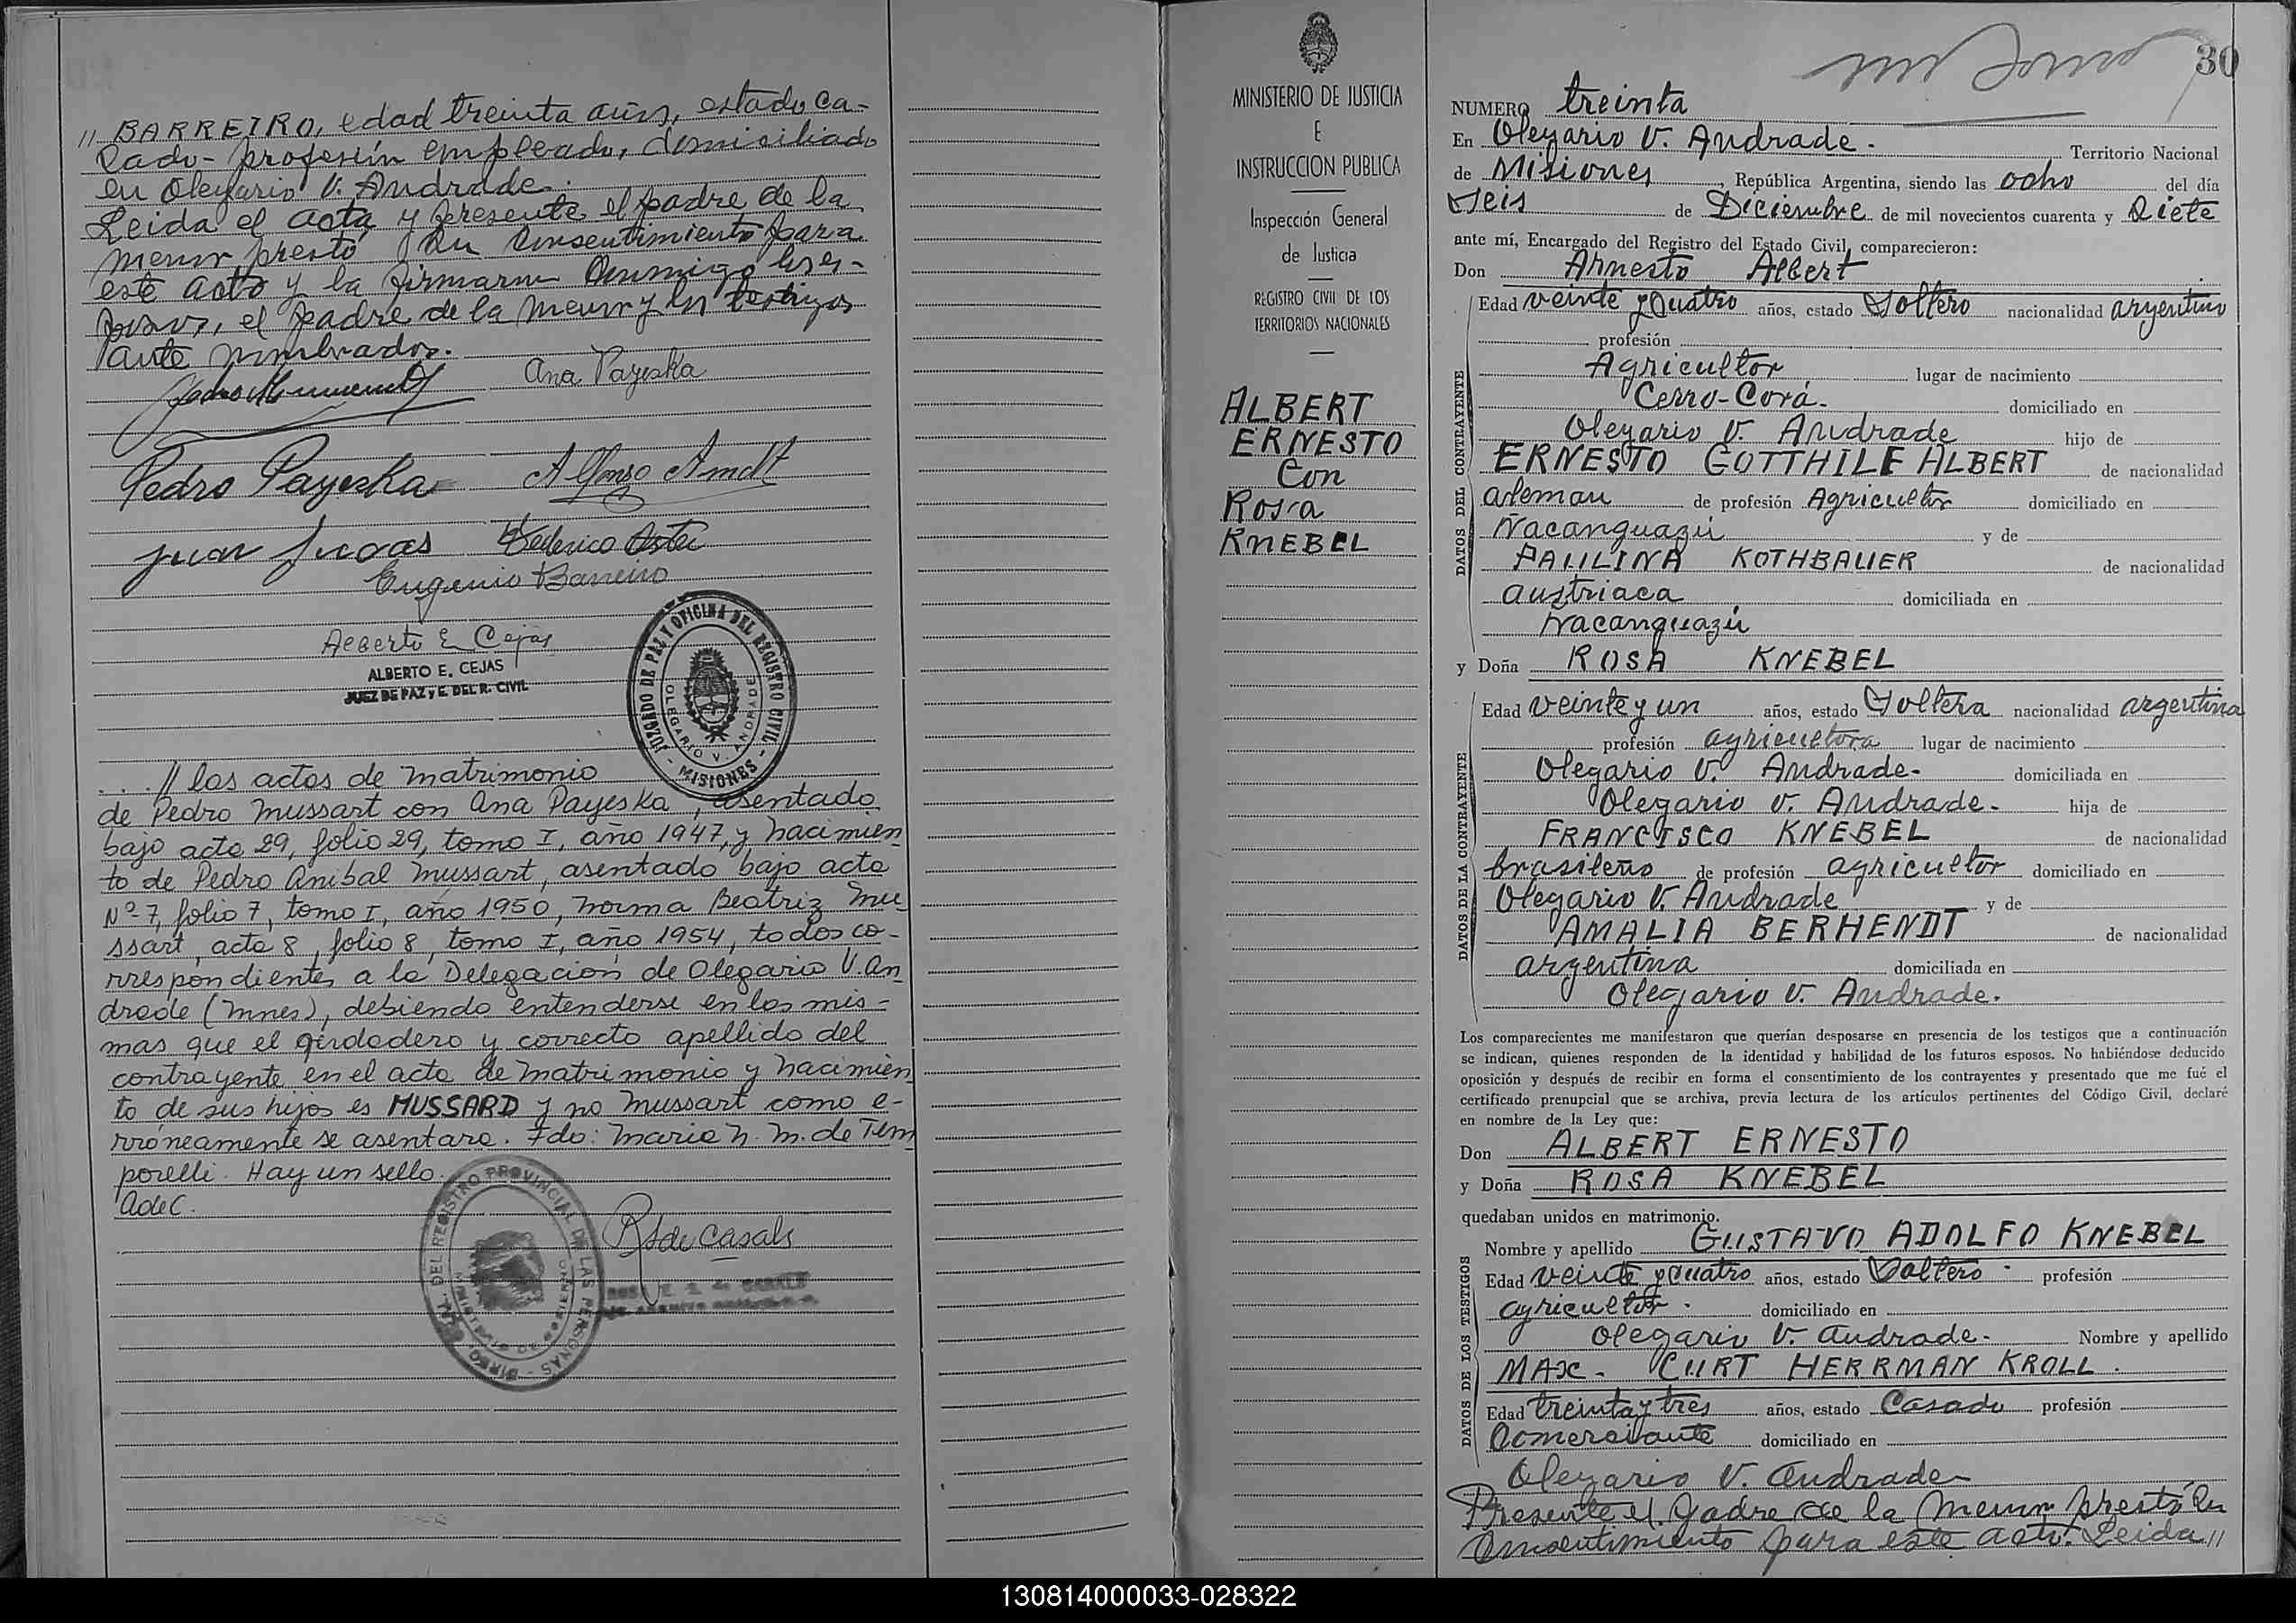 // BARREIRO, edad treinta años, estado ca-
sado - profesión empleado, domiciliado
en Olegario V. Andrade.
Leida el acta y presente el padre de la
menor prestó su consentimiento para
este acto y la firmaron conmigo los es-
posos, el padre de la menor y los testigos
ante nombrados.
Ana Payeska
Pedro Payeska
Alfonso Arndt
Juan
Federico
Eugenio Barreiro
Alberto E. Cejas
ALBERTO E. CEJAS
JUEZ DE PAZ y E. DEL R. CIVIL
JUZGADO DE PAZ Y OFICINA DEL REGISTRO CIVIL
OLEGARIO V. ANDRADE
- MISIONES -
...// las actas de matrimonio
de Pedro Mussart con Ana Payeska, asentado
bajo acta 29, folio 29, tomo I, año 1947, y nacimien
to de Pedro Anibal Mussart, asentado bajo acta
Nº 7, folio 7, tomo I, año 1950, Norma Beatriz Mu
ssart, acta 8, folio 8, tomo I, año 1954, todos co-
rrespondientes a la Delegación de Olegario V. An
drade (Mnes), debiendo entenderse en las mis-
mas que el verdadero y correcto apellido del
contrayente en el acta de matrimonio y nacimien
to de sus hijos es MUSSARD y no Mussart como e-
rróneamente se asentara. Fdo: Maria N. M. de Tem
porelli. Hay un sello.
AdeC.
DEL REGISTRO PROVINCIAL DE LAS PERSONAS
R de Casals
MINISTERIO DE JUSTICIA
E
INSTRUCCION PUBLICA
Inspección General
de Justicia
REGISTRO CIVIL DE LOS
TERRITORIOS NACIONALES
ALBERT
ERNESTO
Con
Rosa
KNEBEL
30
NUMERO treinta
En Olegario V. Andrade. Territorio Nacional
de Misiones, República Argentina, siendo las ocho del día
seis de Diciembre de mil novecientos cuarenta y siete
ante mí, Encargado del Registro del Estado Civil, comparecieron:
Don Arnesto Albert
DATOS DEL CONTRAYENTE
Edad veinte y cuatro años, estado soltero nacionalidad argentino
profesión
Agricultor lugar de nacimiento
Cerro-Corá. domiciliado en
Olegario V. Andrade hijo de
ERNESTO GOTTHILF ALBERT de nacionalidad
aleman de profesión Agricultor domiciliado en
Ñacanguazú y de
PAULINA KOTHBAUER de nacionalidad
austriaca domiciliada en
Ñacanguazú
y Doña ROSA KNEBEL
DATOS DE LA CONTRAYENTE
Edad veinte y un años, estado soltera nacionalidad argentina
profesión agricultora lugar de nacimiento
Olegario V. Andrade. domiciliada en
Olegario V. Andrade. hija de
FRANCISCO KNEBEL de nacionalidad
brasileño de profesión agricultor domiciliado en
Olegario V. Andrade y de
AMALIA BERHENDT de nacionalidad
argentina domiciliada en
Olegario V. Andrade.
Los comparecientes me manifestaron que querían desposarse en presencia de los testigos que a continuación
se indican, quienes responden de la identidad y habilidad de los futuros esposos. No habiéndose deducido
oposición y después de recibir en forma el consentimiento de los contrayentes y presentado que me fué el
certificado prenupcial que se archiva, previa lectura de los artículos pertinentes del Código Civil, declaré
en nombre de la Ley que:
Don ALBERT ERNESTO
y Doña ROSA KNEBEL
quedaban unidos en matrimonio.
DATOS DE LOS TESTIGOS
Nombre y apellido GUSTAVO ADOLFO KNEBEL
Edad veinte y cuatro años, estado soltero. profesión
agricultor. domiciliado en
Olegario V. Andrade. Nombre y apellido
MAX. CURT HERRMAN KROLL.
Edad treinta y tres años, estado Casado profesión
Comerciante domiciliado en
Olegario V. Andrade
Presente el padre de la menor prestó su
consentimiento para este acto. Leida //
130814000033-028322